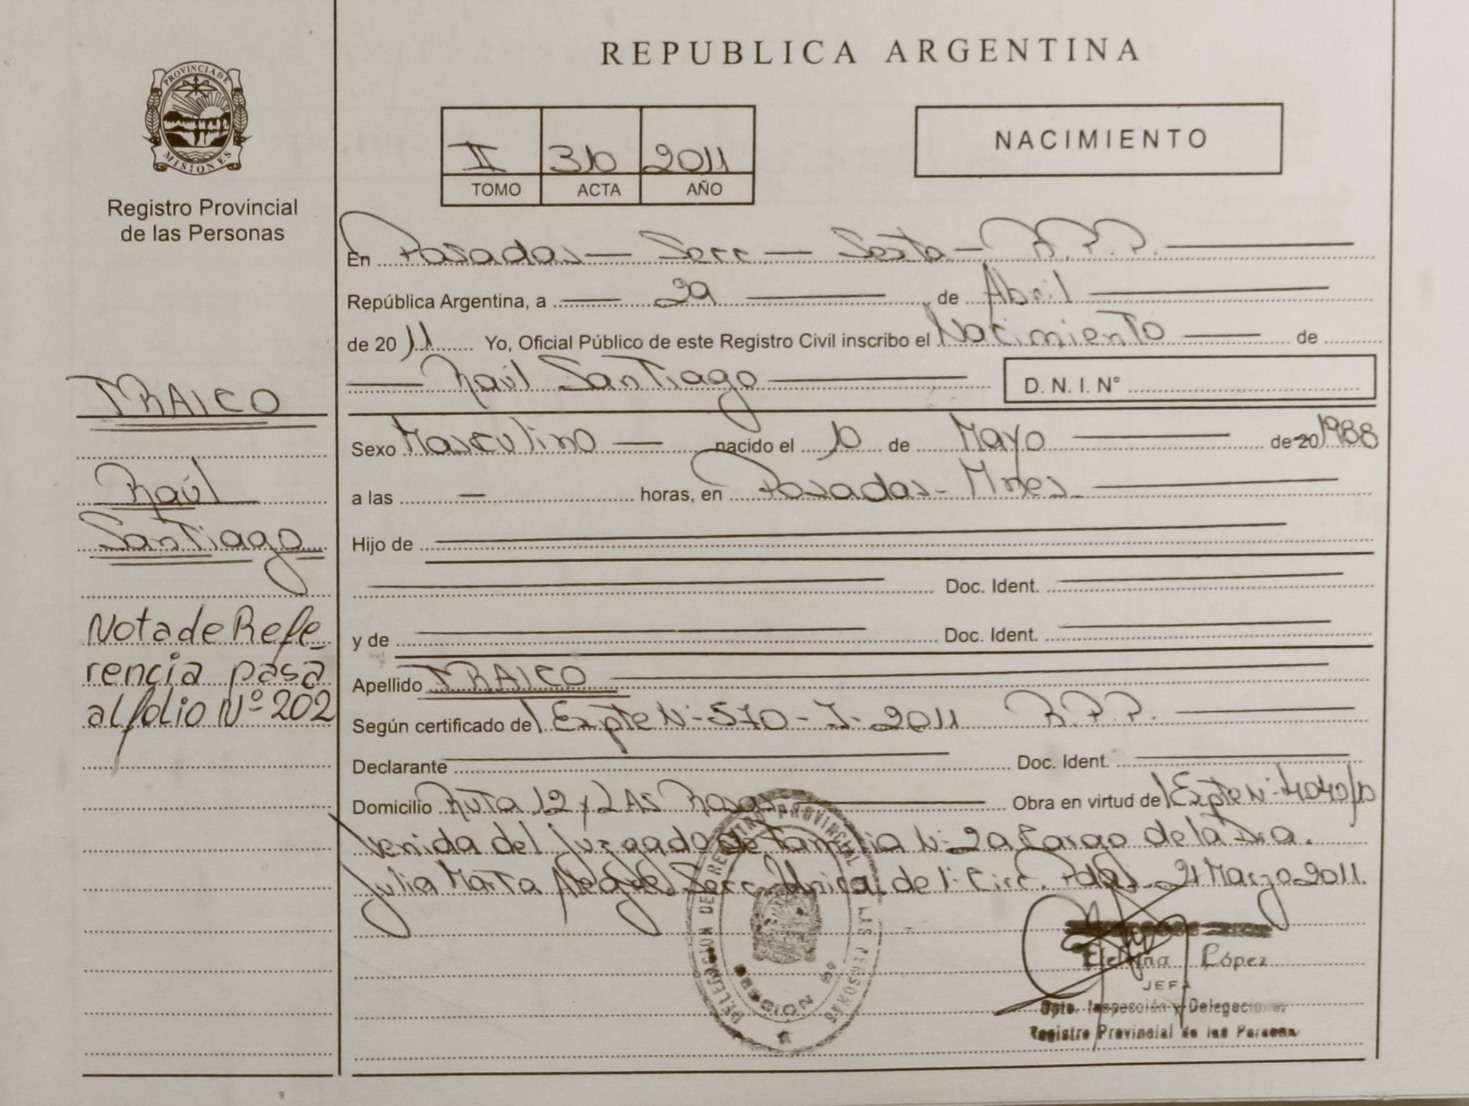 REPUBLICA ARGENTINA
PROVINCIA DE MISIONES
Registro Provincial
de las Personas
II 310 2011
TOMO ACTA AÑO
NACIMIENTO
En Posadas — Secc. — Sexta — R.P.P.
República Argentina, a 29 de Abril
de 2011 Yo, Oficial Público de este Registro Civil inscribo el Nacimiento de
Raúl Santiago D. N. I. N°
TRAICO
Raúl
Santiago
Nota de Refe
rencia pasa
al folio Nº 202
Sexo Masculino nacido el 10 de Mayo de 20 1988
a las — horas, en Posadas - Mnes
Hijo de
Doc. Ident.
y de Doc. Ident.
Apellido TRAICO
Según certificado de Expte N: 570 - I - 2011 R.P.P.
Declarante Doc. Ident.
Domicilio Ruta 12 y LAS Rosas Obra en virtud de Expte N: 4040/10
Venida del Juzgado de Familia N: 2 a Cargo de la Dra.
Julia Marta Secc. Unica. de 1: Circ. Pdas. 21 Marzo 2011.
DELEGACION DE REGISTRO PROVINCIAL DE LAS PERSONAS
SECCION 6º
López
JEFA
Dpto. Inspección y Delegaciones
Registro Provincial de las Personas